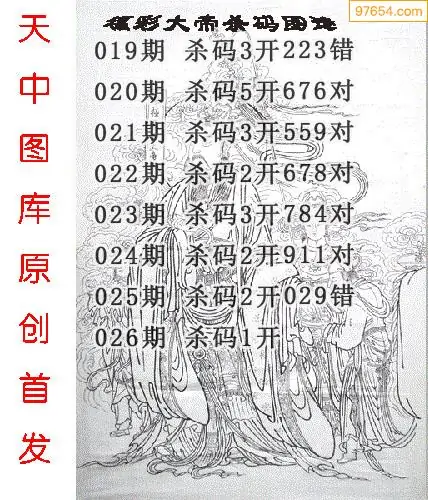 97654.com
福彩大帝杀码图谜
019期 杀码3开223错
020期 杀码5开676对
021期 杀码3开559对
022期 杀码2开678对
023期 杀码3开784对
024期 杀码2开911对
025期 杀码2开029错
026期 杀码1开
天中图库原创首发